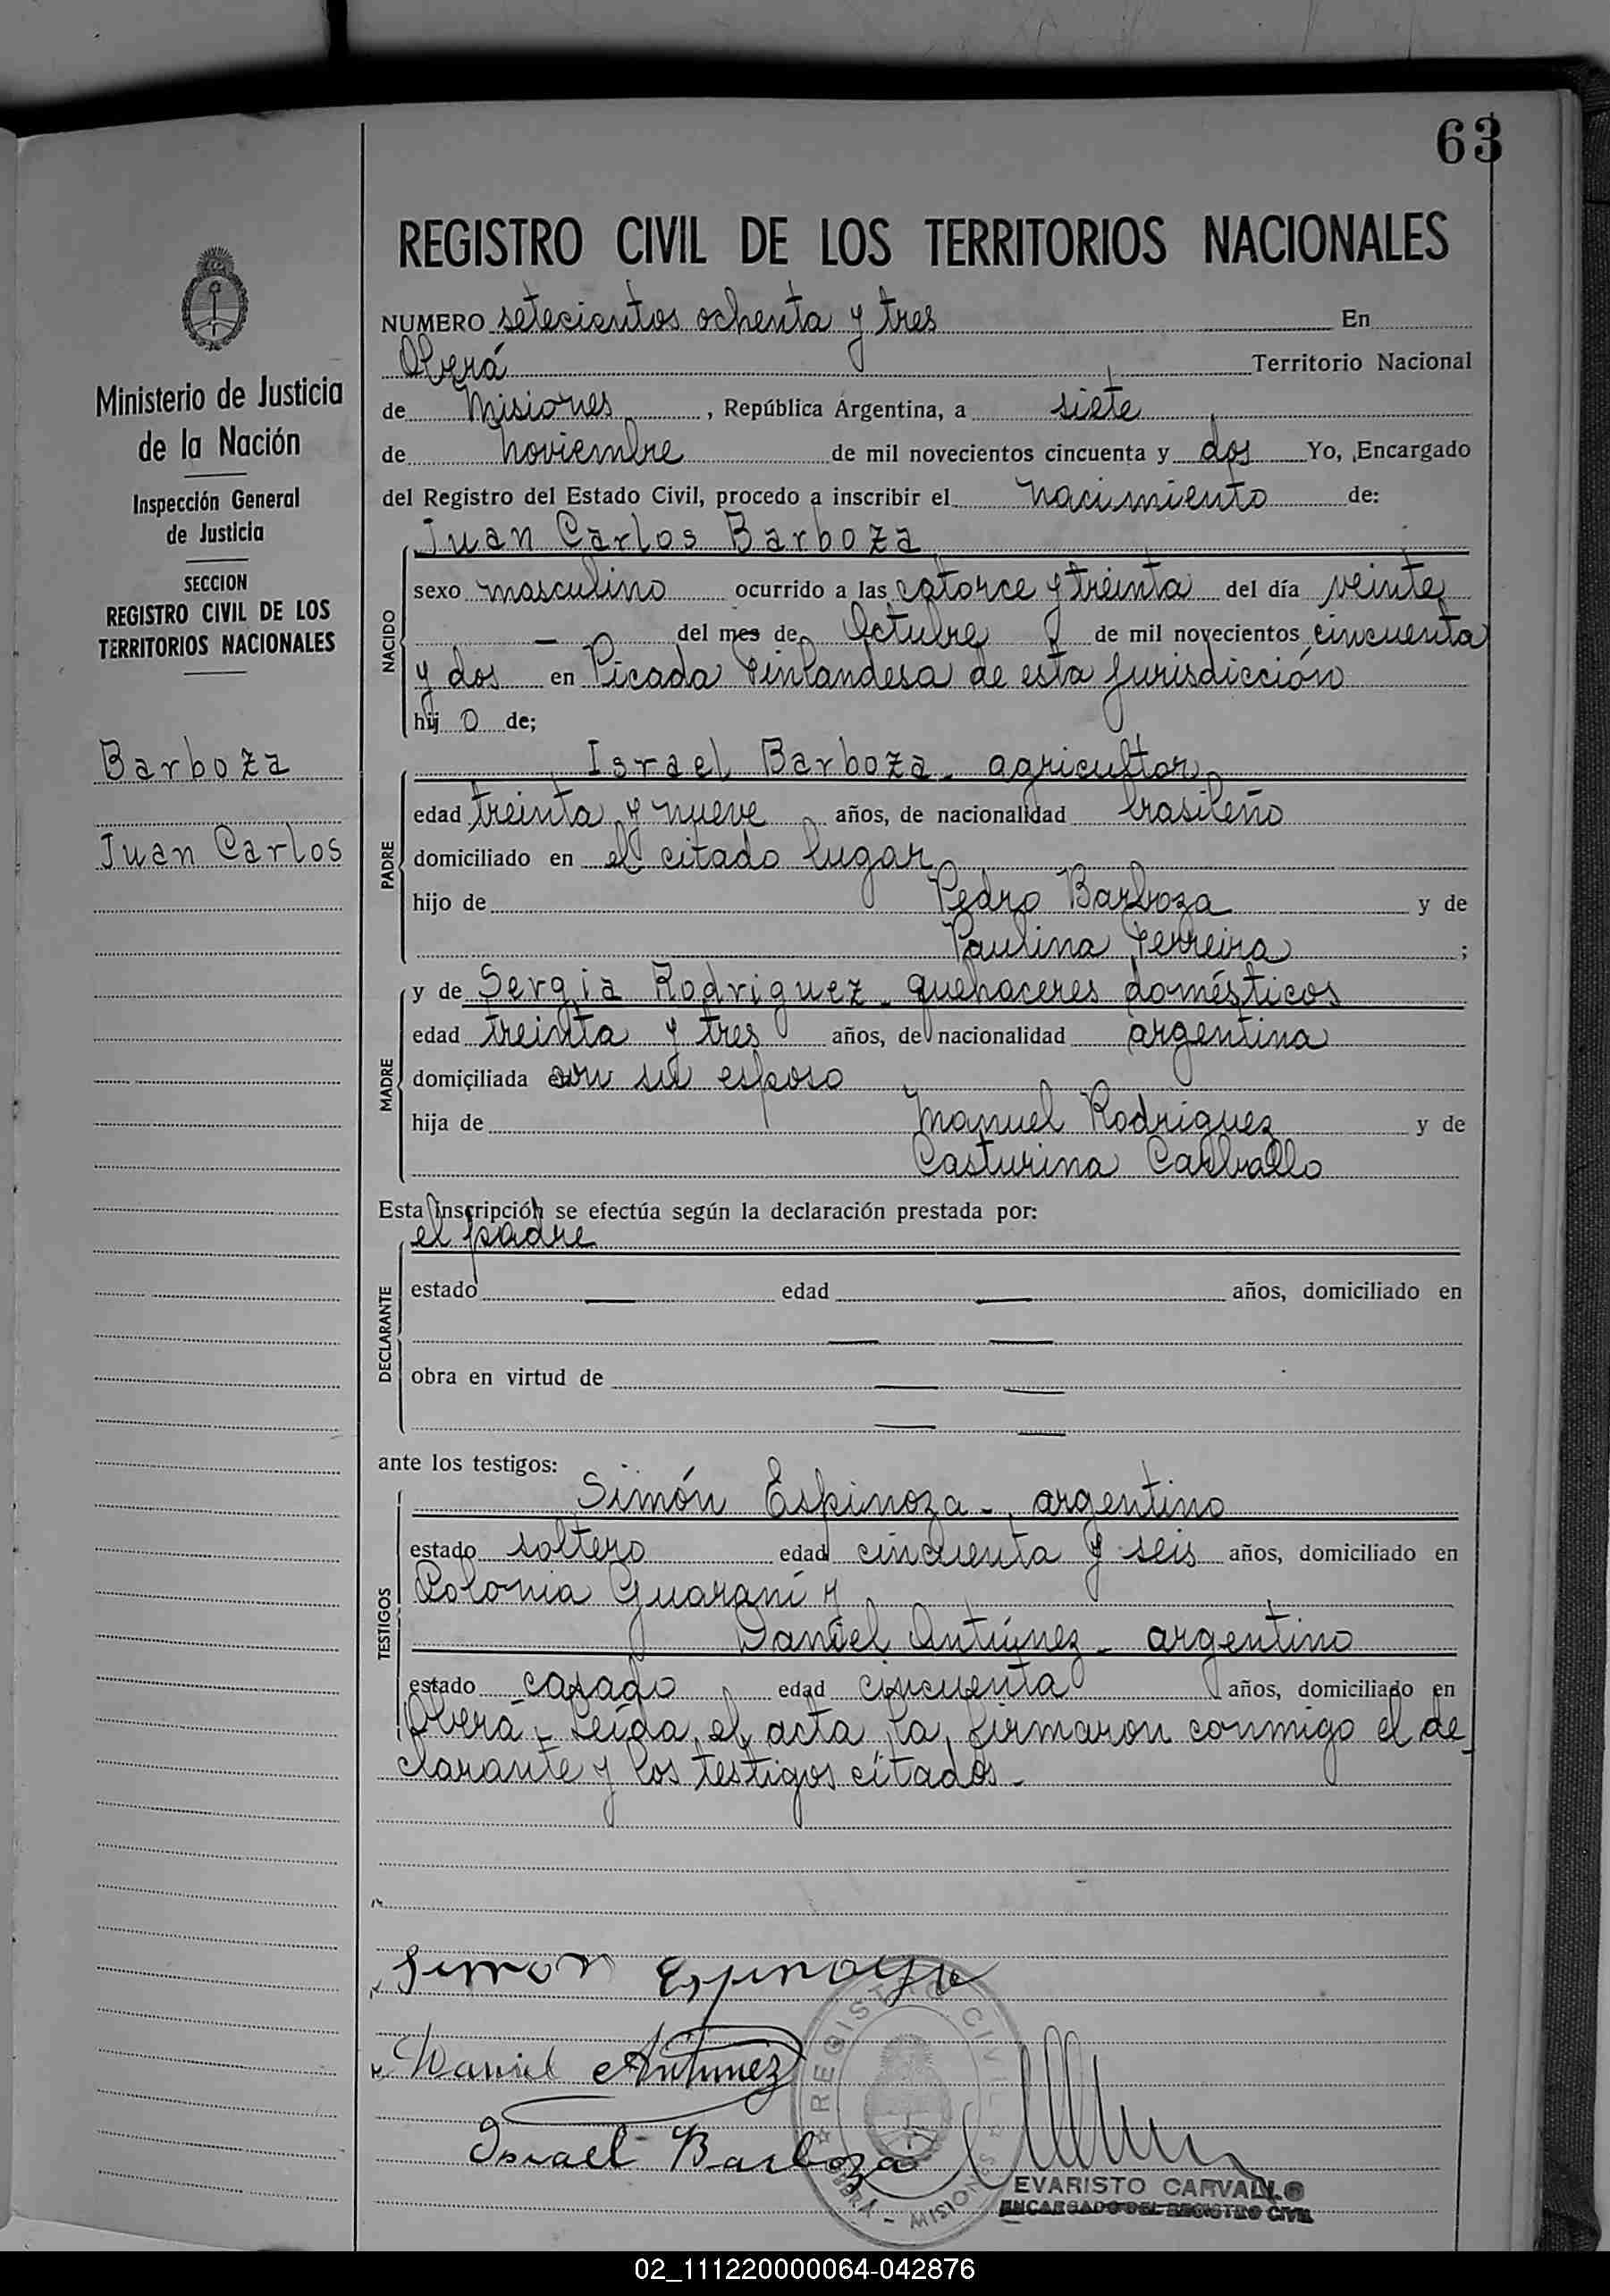 63
REGISTRO CIVIL DE LOS TERRITORIOS NACIONALES
NUMERO setecientos ochenta y tres En
Oberá Territorio Nacional
de Misiones, República Argentina, a siete
de noviembre de mil novecientos cincuenta y dos Yo, Encargado
del Registro del Estado Civil, procedo a inscribir el nacimiento de:
Juan Carlos Barboza
NACIDO
sexo masculino ocurrido a las catorce y treinta del día veinte
— del mes de Octubre de mil novecientos cincuenta
y dos en Picada Finlandesa de esta jurisdicción
hij o de;
Israel Barboza - agricultor
PADRE
edad treinta y nueve años, de nacionalidad brasileño
domiciliado en el citado lugar
hijo de Pedro Barboza y de
Paulina Ferreira ;
MADRE
y de Sergia Rodriguez - quehaceres domésticos
edad treinta y tres años, de nacionalidad argentina
domiciliada con su esposo
hija de Manuel Rodriguez y de
Casturina Carballo
Esta inscripción se efectúa según la declaración prestada por:
el padre
DECLARANTE
estado — edad — años, domiciliado en
— —
obra en virtud de — —
— —
ante los testigos:
Simón Espinoza - argentino
TESTIGOS
estado soltero edad cincuenta y seis años, domiciliado en
Colonia Guaraní y
Daniel Antúnez - argentino
estado casado edad cincuenta años, domiciliado en
Oberá - Leída el acta la firmaron conmigo el de-
clarante y los testigos citados -
Simon Espinoza
Daniel Antunez
Israel Barboza
REGISTRO CIVIL
OBERÁ - MISIONES
EVARISTO CARVALLO
ENCARGADO DEL REGISTRO CIVIL
Ministerio de Justicia
de la Nación
Inspección General
de Justicia
SECCION
REGISTRO CIVIL DE LOS
TERRITORIOS NACIONALES
Barboza
Juan Carlos
02_111220000064-042876